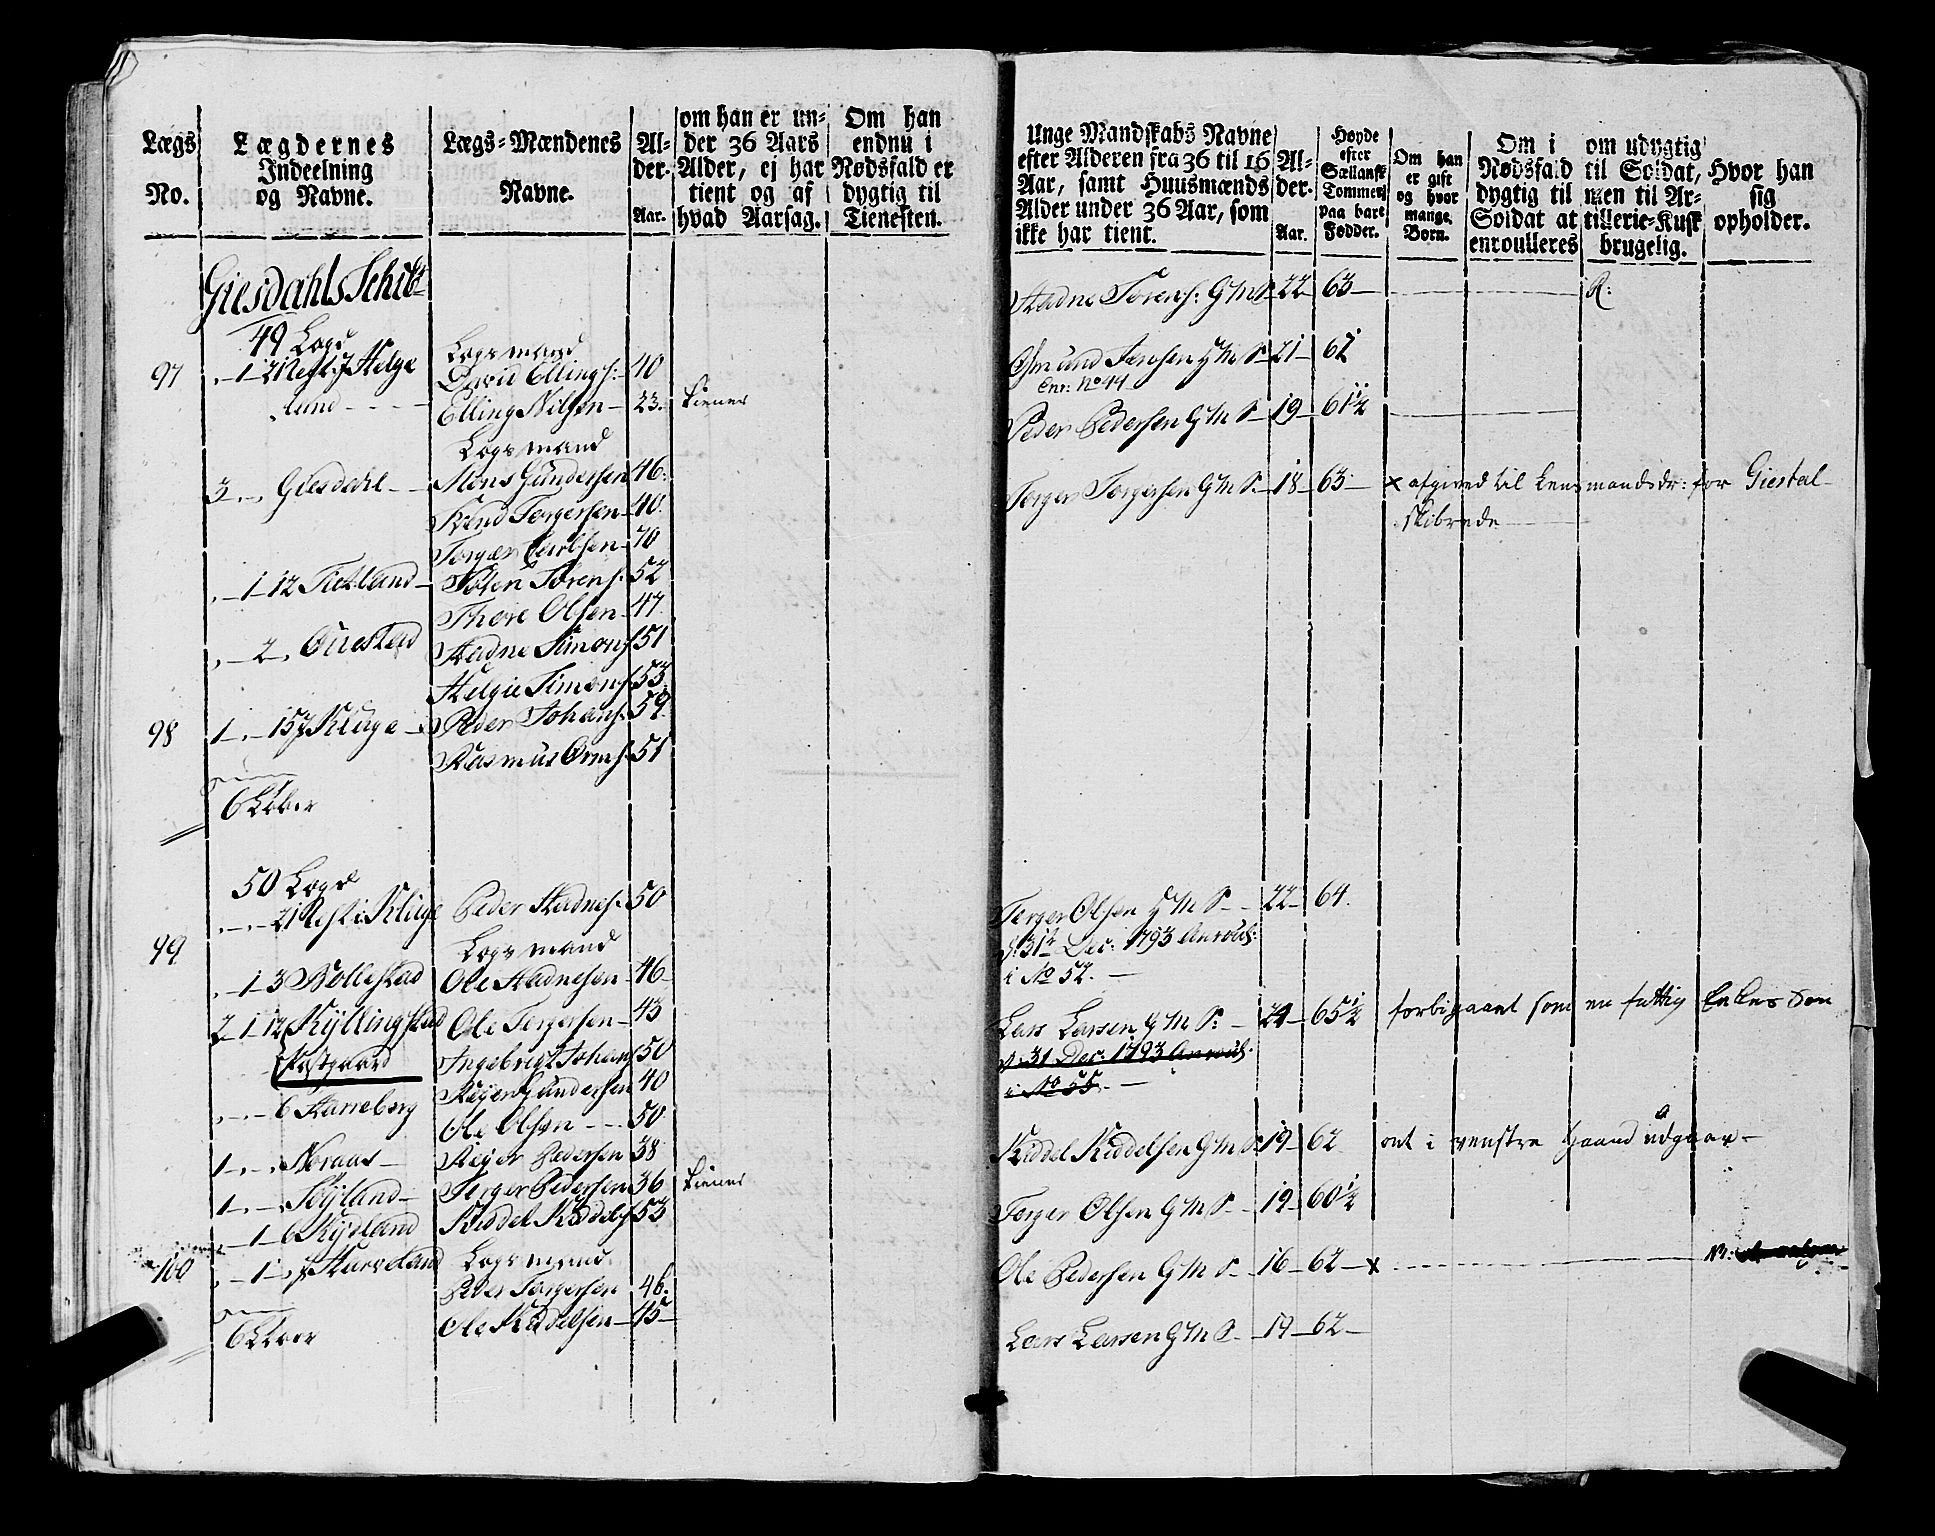 Lægs
No.
Lægdernes
Indeelning
og Navne.
Lægs-Mændenes
Navne.
Al-
der.
Aar.
om han er un-
der 36 Aars
Alder, ej har
tient og af
hvad Aarsag.
Om han
endnu i
Nødsfald er
dygtig til
Tienesten.
Giesdahls Schib:
49 Lægd
Lægsmand
97 1 2 Helge David Ellings: 40
lund Elling Nilsen 23. tiener
Lægsmand
3 Giesdahl Mons Gundersen 46.
Svend Torgersen 40.
Torger 70
1 12 Sören Sörens: 52
Thore Olsen 47.
2 Ouestad Hadne Simons 51
Helgie Simons 53
98 1 15 Kluge Peder Johans: 59.
Rasmus Orms: 51
October
50 Lægd
2 Kluge Peder Hadnes: 50
99 Lægsmand
1 3 Bollestad Ole Hadnesen 46
2 1 12 Kyllingstad Ole Torgersen 43
Præstgaard Ingebrigt Johans 50
Reyer Gundersen 40
6 Ole Olsen 50
1 Noraas Reyer Pedersen 38
1 Söyland Torger Pedersen 36 tiener
1 6 Kydland Kiddel Kiddels 53
100 1 Lægsmand
Peder Torgersen 46.
October Ole Kiddelsen 45
Unge Mandskabs Navne
efter Alderen fra 36 til 16
Aar, samt Huusmænds
Alder under 36 Aar, som
ikke har tient.
Al-
der.
Aar.
Høyde
efter
Sællansk
Tommer
paa bare
Fødder.
Om han
er gift
og hvor
mange
Børn.
Om i
Nødsfald
dygtig til
Soldat at
enroulleres
om udygtig
til Soldat,
men til Ar-
tillerie-Kusk
brugelig.
Hvor han
sig
opholder.
Hadne Sörens: G M S 22 63 R:
Osmund Jensen G M S 21 62
Enr: No 44
Peder Pedersen G M S 19 61 1/2
Torger Torgersen G M S. 18 63 x afgived til Lensmandsdr: for Giestal
skibrede
Torger Olsen G M S 22 64.
d: 31te Dec: 1793 Anroul:
i No 52.
Lars Larsen G M S: 24 65 1/2 forbigaaet som en fattig Enkes Søn
d: 31 Dec: 1793 Anroul:
i No 55.
Kiddel Kiddelsen G M S 19 62 ont i venstre Haand udgaar
Torger Olsen G M S 19 60 1/2
Ole Pedersen G M S 16 62 x
Lars Larsen G M S 19 62